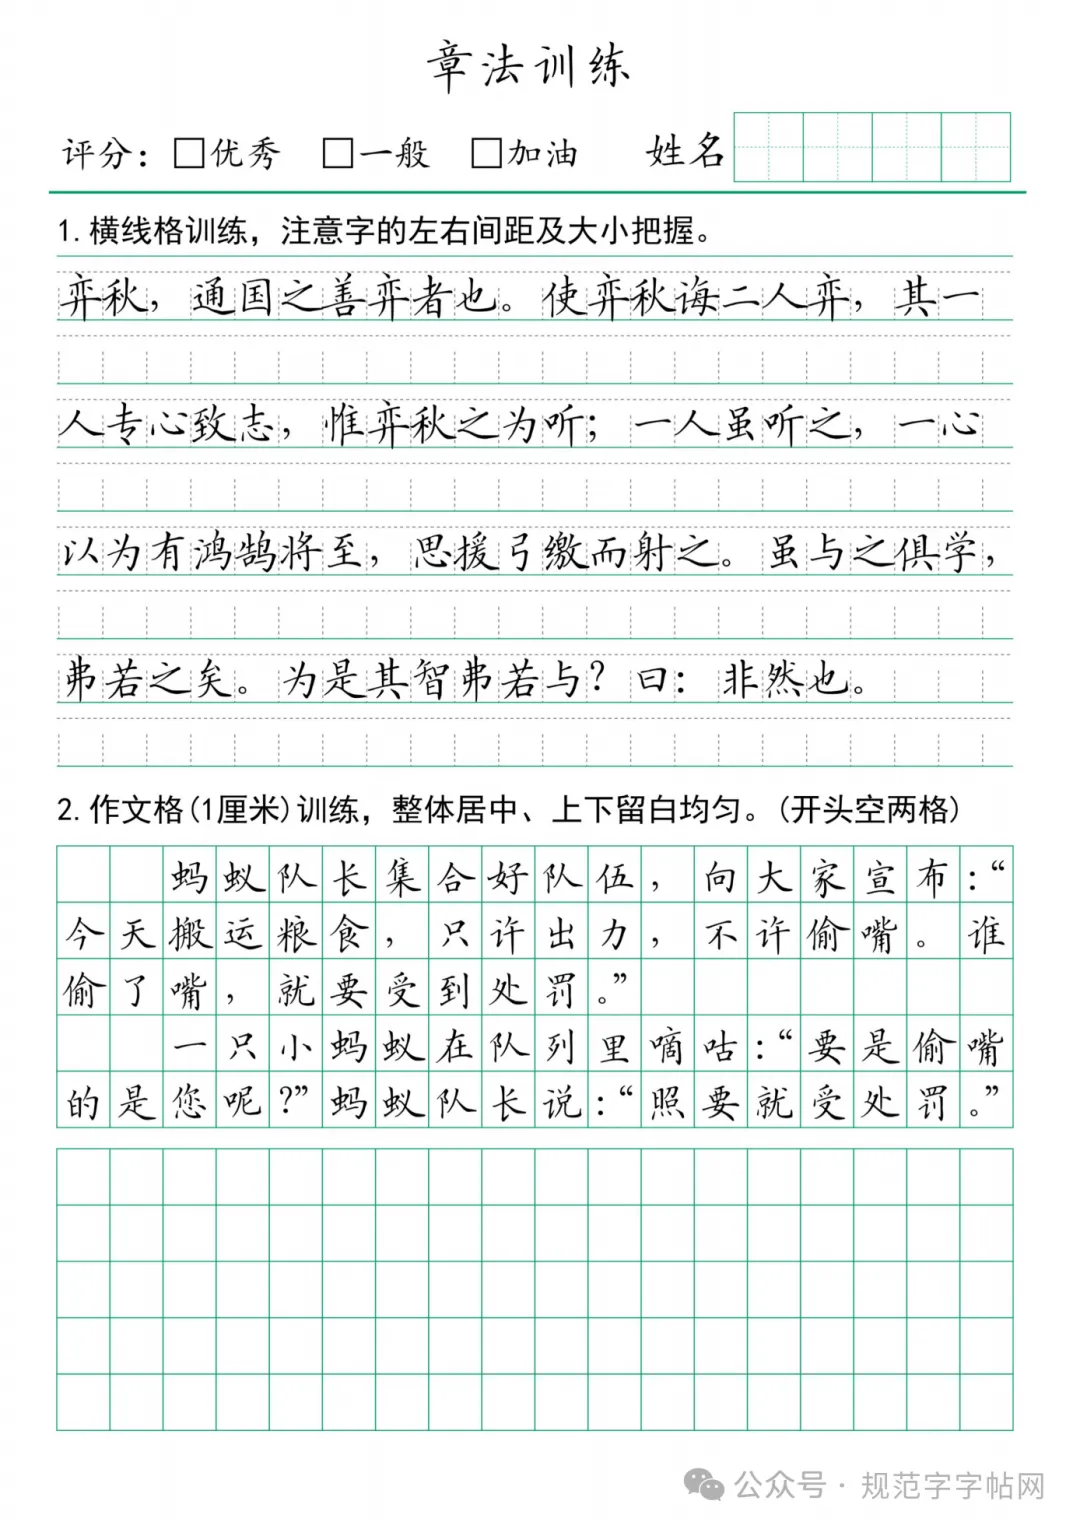 章法训练
评分：□优秀 □一般 □加油 姓名
1.横线格训练，注意字的左右间距及大小把握。
弈秋，通国之善弈者也。使弈秋诲二人弈，其一
人专心致志，惟弈秋之为听；一人虽听之，一心
以为有鸿鹄将至，思援弓缴而射之。虽与之俱学，
弗若之矣。为是其智弗若与？曰：非然也。
2.作文格(1厘米)训练，整体居中、上下留白均匀。(开头空两格)
蚂蚁队长集合好队伍，向大家宣布：“
今天搬运粮食，只许出力，不许偷嘴。谁
偷了嘴，就要受到处罚。”
一只小蚂蚁在队列里嘀咕：“要是偷嘴
的是您呢？”蚂蚁队长说：“照要就受处罚。”
公众号·规范字字帖网